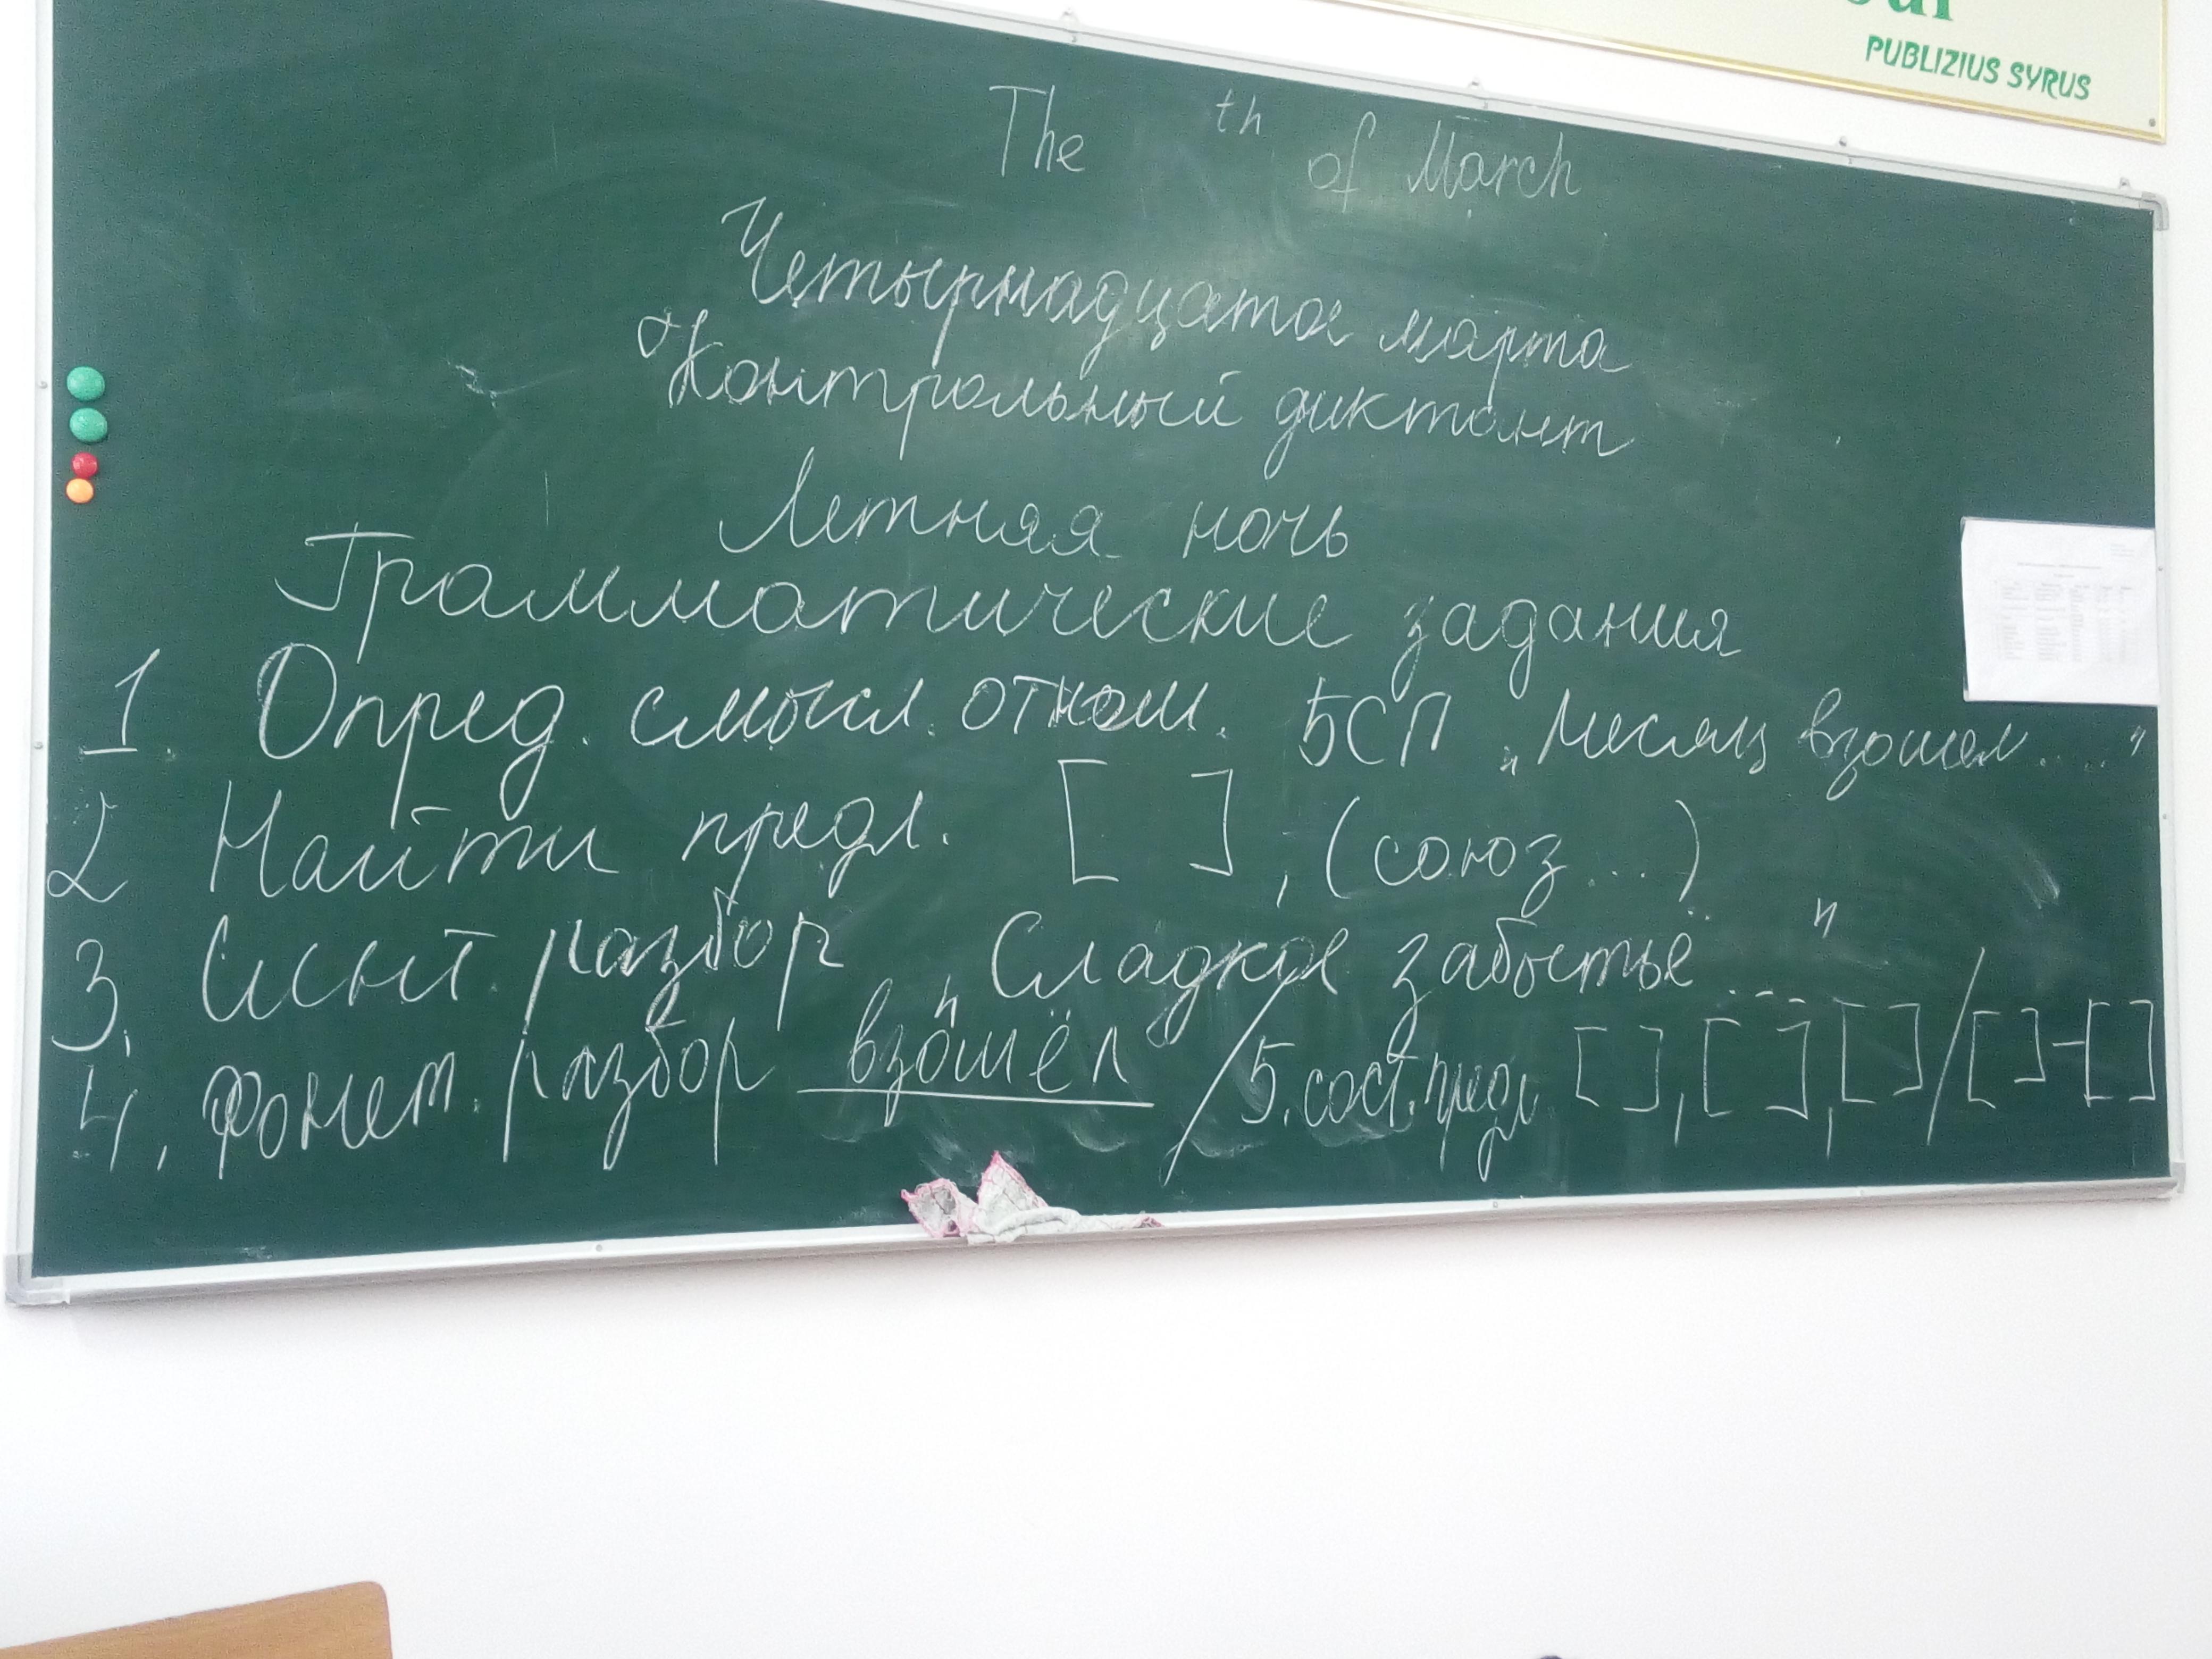 PUBLIZIUS SYRUS
The th of March
Четырнадцатое марта
Контрольный диктант
Летняя ночь
Грамматические задания
1. Опред. смысл. отнош. БСП „Месяц взошел...."
2 Найти предл. [ ], (союз...)
3. Синт. разбор „Сладкое забытье ...."
4. Фонет. разбор взошёл / 5. сост. предл [ ], [ ], [ ] / [ ] - [ ]